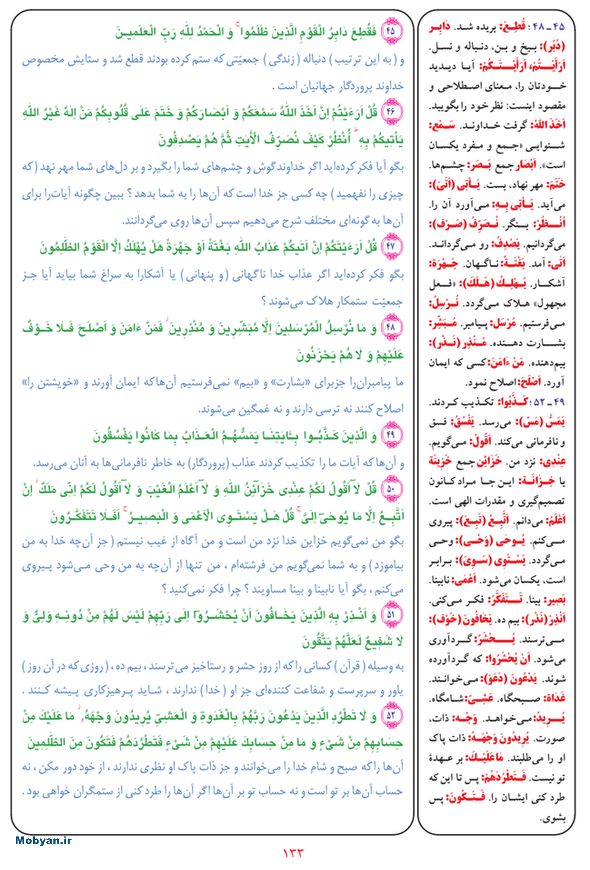 ۴۵ ـ ۴۸ : قُطِعَ: بریده شد. دابِر
(دُبُر): بیخ و بن، دنباله و نسل.
أَرَأَیْتُمْ، أَرَأَیْتَکُمْ: آیا دیدید
خودتان را، معنای اصطلاحی و
مقصود اینست: نظر خود را بگویید.
أَخَذَ اللهُ: گرفت خداوند. سَمْع:
شنوایی «جمع و مفرد یکسان
است». أَبْصار جمع بَصَر: چشم‌ها.
خَتَمَ: مهر نهاد، بست. یَأتی (أَتیَ):
می‌آید. یَأتی بِهِ: می‌آورد آن را.
اُنْظُرْ: بنگر. نُصَرِّفُ (صَرَفَ):
می‌گردانیم. یَصْدِفُ: رو می‌گرداند.
أَتیٰ: آمد. بَغْتَةً: ناگهان. جَهْرَة:
آشکار. یُهْلَکُ (هَلَکَ): «فعل
مجهول» هلاک می‌گردد. نُرْسِلُ:
می‌فرستیم. مُرْسَل: پیامبر. مُبَشِّر:
بشارت دهنده. مُنْذِر (نَذَرَ):
بیم‌دهنده. مَنْ ءَامَنَ: کسی که ایمان
آورد. أَصْلَحَ: اصلاح نمود.
۴۹ ـ ۵۲ : کَذَّبُوا: تکذیب کردند.
یَمَسُّ (مَسَّ): می‌رسد. یَفْسُقُ: فسق
و نافرمانی می‌کند. أَقُولُ: می‌گویم.
عِنْدِی: نزد من. خَزائِن جمع خَزِینَة
یا خِزانَة: این جا مراد کانون
تصمیم‌گیری و مقدرات الهی است.
أَعْلَمُ: می‌دانم. أَتَّبِعُ (تَبِعَ): پیروی
می‌کنم. یُوحیٰ (وَحْی): وحی
می‌گردد. یَسْتَوی (سَوِیَ): برابر
است، یکسان می‌شود. أَعْمَیٰ: نابینا.
بَصِیر: بینا. تَتَفَکَّرُ: فکر می‌کنی.
أَنْذِرْ (نَذَرَ): بیم ده. یَخافُونَ (خَوْف):
می‌ترسند. یُحْشَرُ: گردآوری
می‌شود. أَنْ یُحْشَرُوا: که گردآورده
شوند. یَدْعُونَ (دَعَوَ): می‌خوانند.
غَداة: صبحگاه. عَشِیّ: شامگاه.
یُرِیدُ: می‌خواهد. وَجْه: ذات،
صورت. یُرِیدُونَ وَجْهَهُ: ذات پاک
او را می‌طلبند. مَا عَلَیْکَ: بر عهدهٔ
تو نیست. فَتَطْرُدَهُمْ: پس تا این که
طرد کنی ایشان را. فَتَکُونَ: پس
بشوی.
۴۵ فَقُطِعَ دَابِرُ الْقَوْمِ الَّذِینَ ظَلَمُوا ۚ وَ الْحَمْدُ لِلّٰهِ رَبِّ الْعٰلَمِینَ
و ( به این ترتیب ) دنباله ( زندگی ) جمعیّتی که ستم کرده بودند قطع شد و ستایش مخصوص
خداوند پروردگار جهانیان است .
۴۶ قُلْ اَرَءَیْتُمْ اِنْ اَخَذَ اللّٰهُ سَمْعَکُمْ وَ اَبْصَارَکُمْ وَ خَتَمَ عَلٰی قُلُوبِکُمْ مَنْ اِلٰهٌ غَیْرُ اللّٰهِ
یَأْتِیکُمْ بِهِ ۗ اُنْظُرْ کَیْفَ نُصَرِّفُ الْاٰیٰتِ ثُمَّ هُمْ یَصْدِفُونَ
بگو آیا فکر کرده‌اید اگر خداوند گوش و چشم‌های شما را بگیرد و بر دل‌های شما مهر نهد ( که
چیزی را نفهمید ) چه کسی جز خدا است که آن‌ها را به شما بدهد ؟ ببین چگونه آیات را برای
آن‌ها به گونه‌ای مختلف شرح می‌دهیم سپس آن‌ها روی می‌گردانند.
۴۷ قُلْ اَرَءَیْتَکُمْ اِنْ اَتٰیکُمْ عَذَابُ اللّٰهِ بَغْتَةً اَوْ جَهْرَةً هَلْ یُهْلَکُ اِلَّا الْقَوْمُ الظّٰلِمُونَ
بگو فکر کرده‌اید اگر عذاب خدا ناگهانی ( و پنهانی ) یا آشکارا به سراغ شما بیاید آیا جز
جمعیّت ستمکار هلاک می‌شوند ؟
۴۸ وَ مَا نُرْسِلُ الْمُرْسَلِینَ اِلَّا مُبَشِّرِینَ وَ مُنْذِرِینَ ۖ فَمَنْ ءَامَنَ وَ اَصْلَحَ فَلَا خَوْفٌ
عَلَیْهِمْ وَ لَا هُمْ یَحْزَنُونَ
ما پیامبران را جز برای «بشارت» و «بیم» نمی‌فرستیم آن‌ها که ایمان آورند و «خویشتن را»
اصلاح کنند نه ترسی دارند و نه غمگین می‌شوند.
۴۹ وَ الَّذِینَ کَذَّبُوا بِـَٔایٰتِنَا یَمَسُّهُمُ الْعَذَابُ بِمَا کَانُوا یَفْسُقُونَ
و آن‌ها که آیات ما را تکذیب کردند عذاب (پروردگار) به خاطر نافرمانی‌ها به آنان می‌رسد.
۵۰ قُلْ لَا اَقُولُ لَکُمْ عِنْدِی خَزَآئِنُ اللّٰهِ وَ لَا اَعْلَمُ الْغَیْبَ وَ لَا اَقُولُ لَکُمْ اِنِّی مَلَکٌ ۖ اِنْ
اَتَّبِعُ اِلَّا مَا یُوحٰی اِلَیَّ ۚ قُلْ هَلْ یَسْتَوِی الْاَعْمٰی وَ الْبَصِیرُ ۚ اَفَلَا تَتَفَکَّرُونَ
بگو من نمی‌گویم خزاین خدا نزد من است و من آگاه از غیب نیستم ( جز آن‌چه خدا به من
بیاموزد ) و به شما نمی‌گویم من فرشته‌ام ، من تنها از آن‌چه به من وحی می‌شود پیروی
می‌کنم ، بگو آیا نابینا و بینا مساویند ؟ چرا فکر نمی‌کنید ؟
۵۱ وَ اَنْذِرْ بِهِ الَّذِینَ یَخَافُونَ اَنْ یُحْشَرُوٓا اِلٰی رَبِّهِمْ لَیْسَ لَهُمْ مِنْ دُونِهِ وَلِیٌّ وَ
لَا شَفِیعٌ لَعَلَّهُمْ یَتَّقُونَ
به وسیله ( قرآن ) کسانی را که از روز حشر و رستاخیز می‌ترسند ، بیم ده ، ( روزی که در آن روز )
یاور و سرپرست و شفاعت کننده‌ای جز او ( خدا ) ندارند ، شاید پرهیزکاری پیشه کنند .
۵۲ وَ لَا تَطْرُدِ الَّذِینَ یَدْعُونَ رَبَّهُمْ بِالْغَدٰوةِ وَ الْعَشِیِّ یُرِیدُونَ وَجْهَهُ ۖ مَا عَلَیْکَ مِنْ
حِسَابِهِمْ مِنْ شَیْءٍ وَ مَا مِنْ حِسَابِکَ عَلَیْهِمْ مِنْ شَیْءٍ فَتَطْرُدَهُمْ فَتَکُونَ مِنَ الظّٰلِمِینَ
آن‌ها را که صبح و شام خدا را می‌خوانند و جز ذات پاک او نظری ندارند ، از خود دور مکن ، نه
حساب آن‌ها بر تو است و نه حساب تو بر آن‌ها اگر آن‌ها را طرد کنی از ستمگران خواهی بود .
Mobyan.ir
۱۳۳